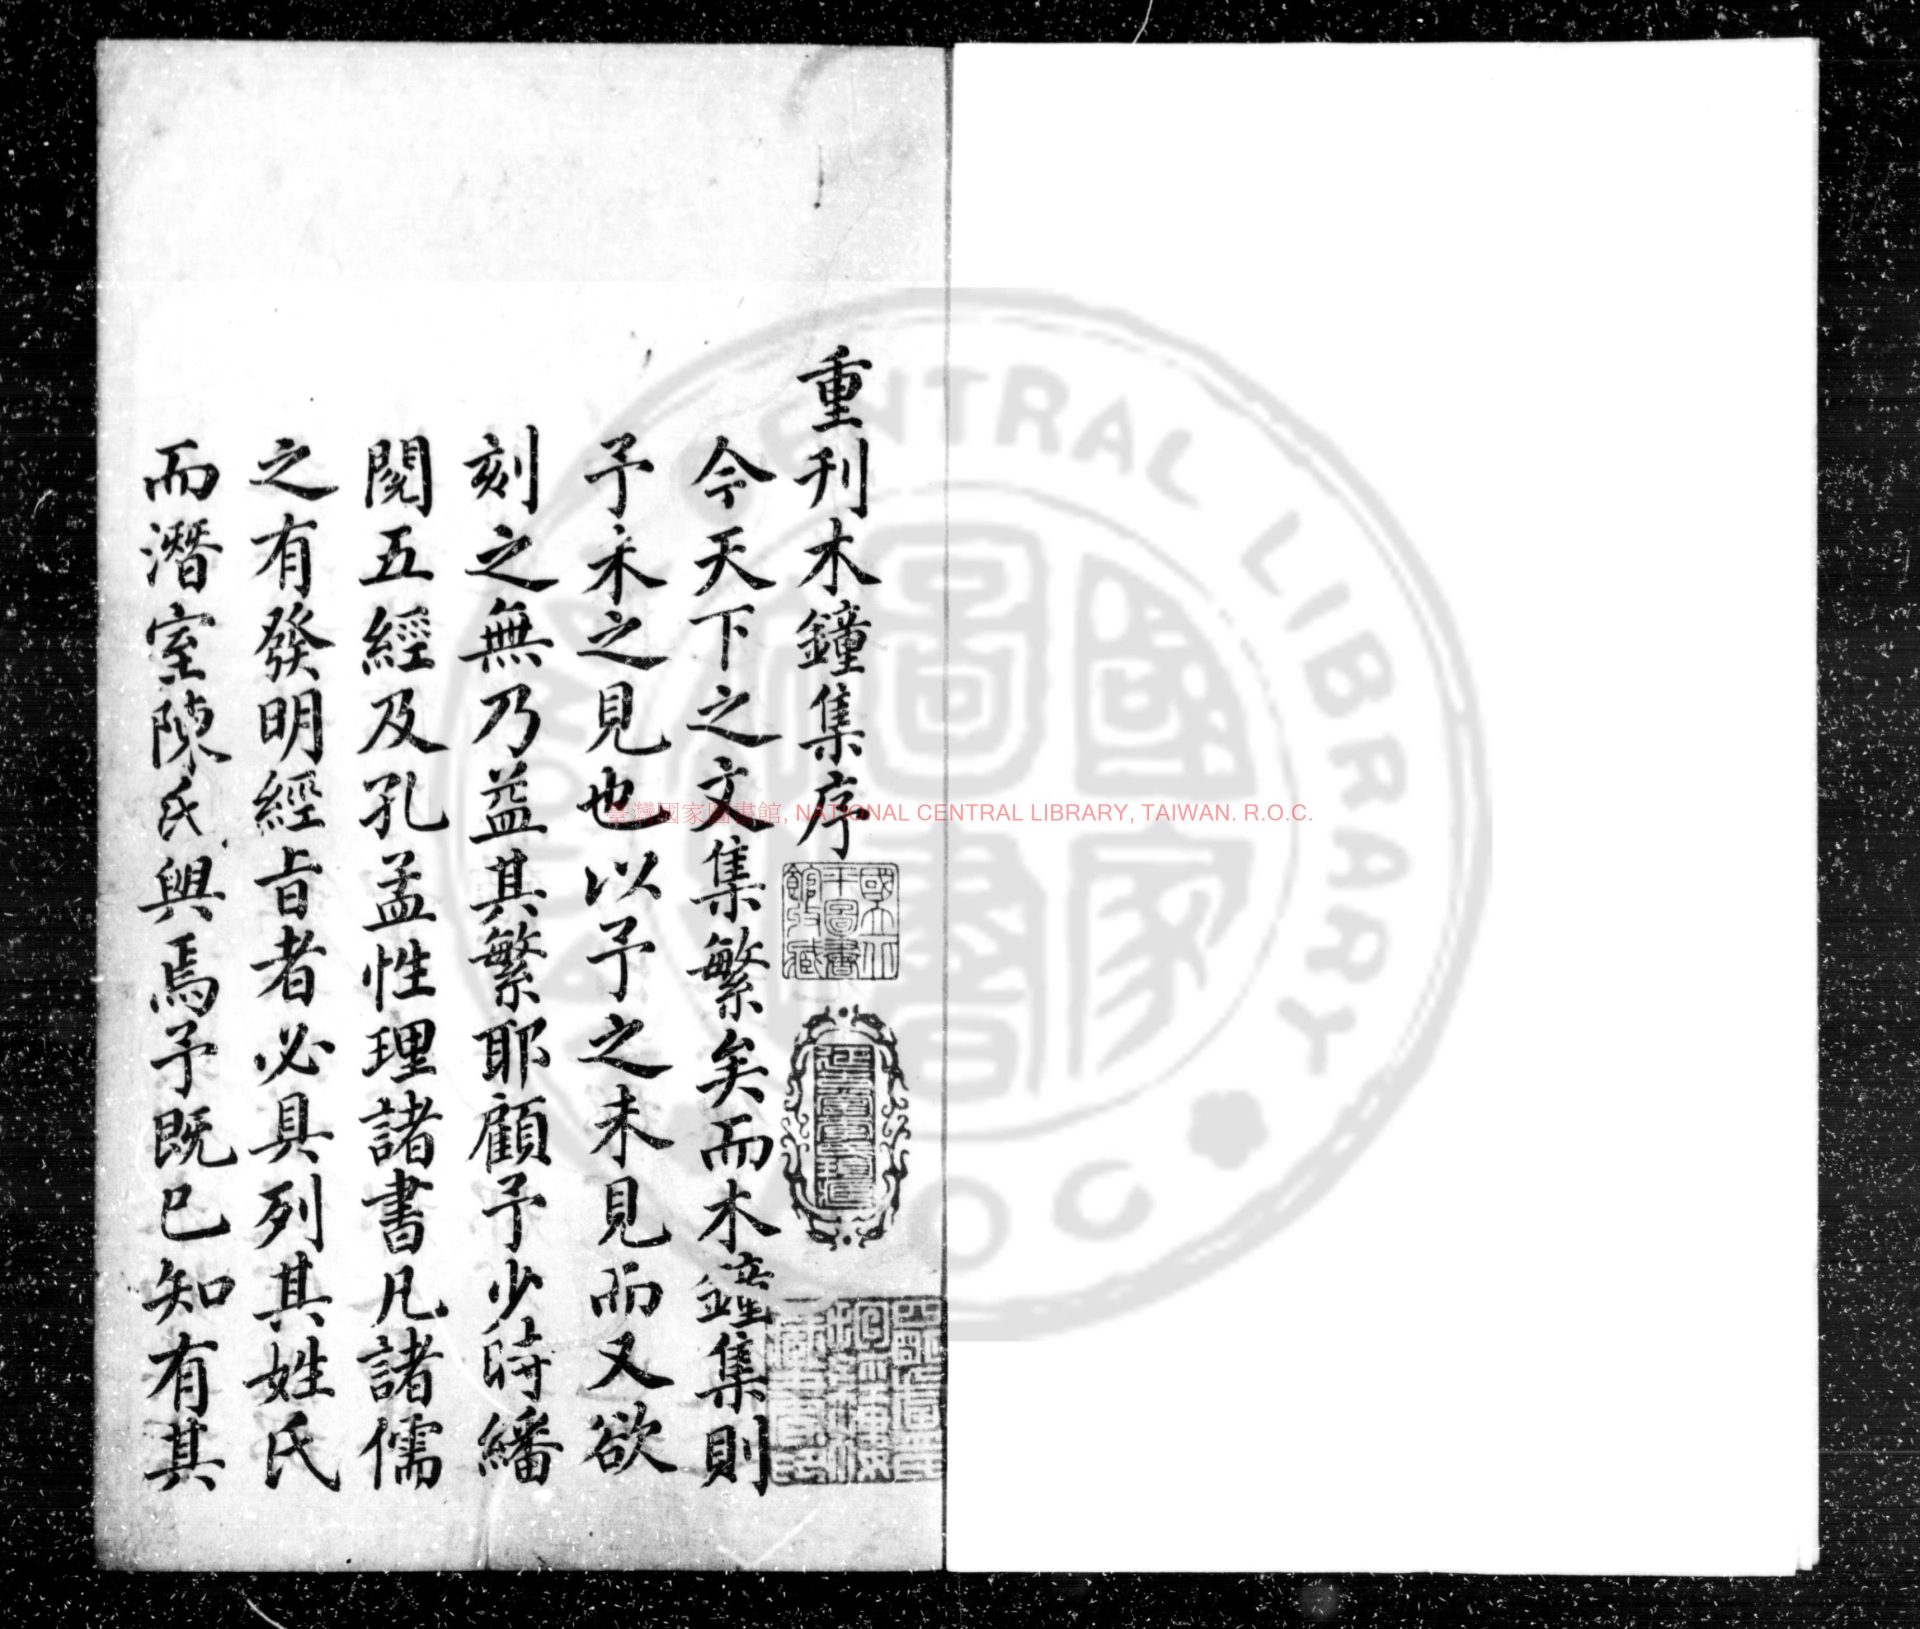 重刊木鐘集序
今天下之文集繁矣而木鐘集則
予未之見也以予之未見而又欲
刻之無乃益其繁耶顧予少時繙
閱五經及孔孟性理諸書凡諸儒
之有發明經旨者必具列其姓氏
而潛室陳氏與焉予既已知有其
國立北平圖書館收藏
臺灣國家圖書館, NATIONAL CENTRAL LIBRARY, TAIWAN. R.O.C.
CENTRAL LIBRARY
國家圖書館